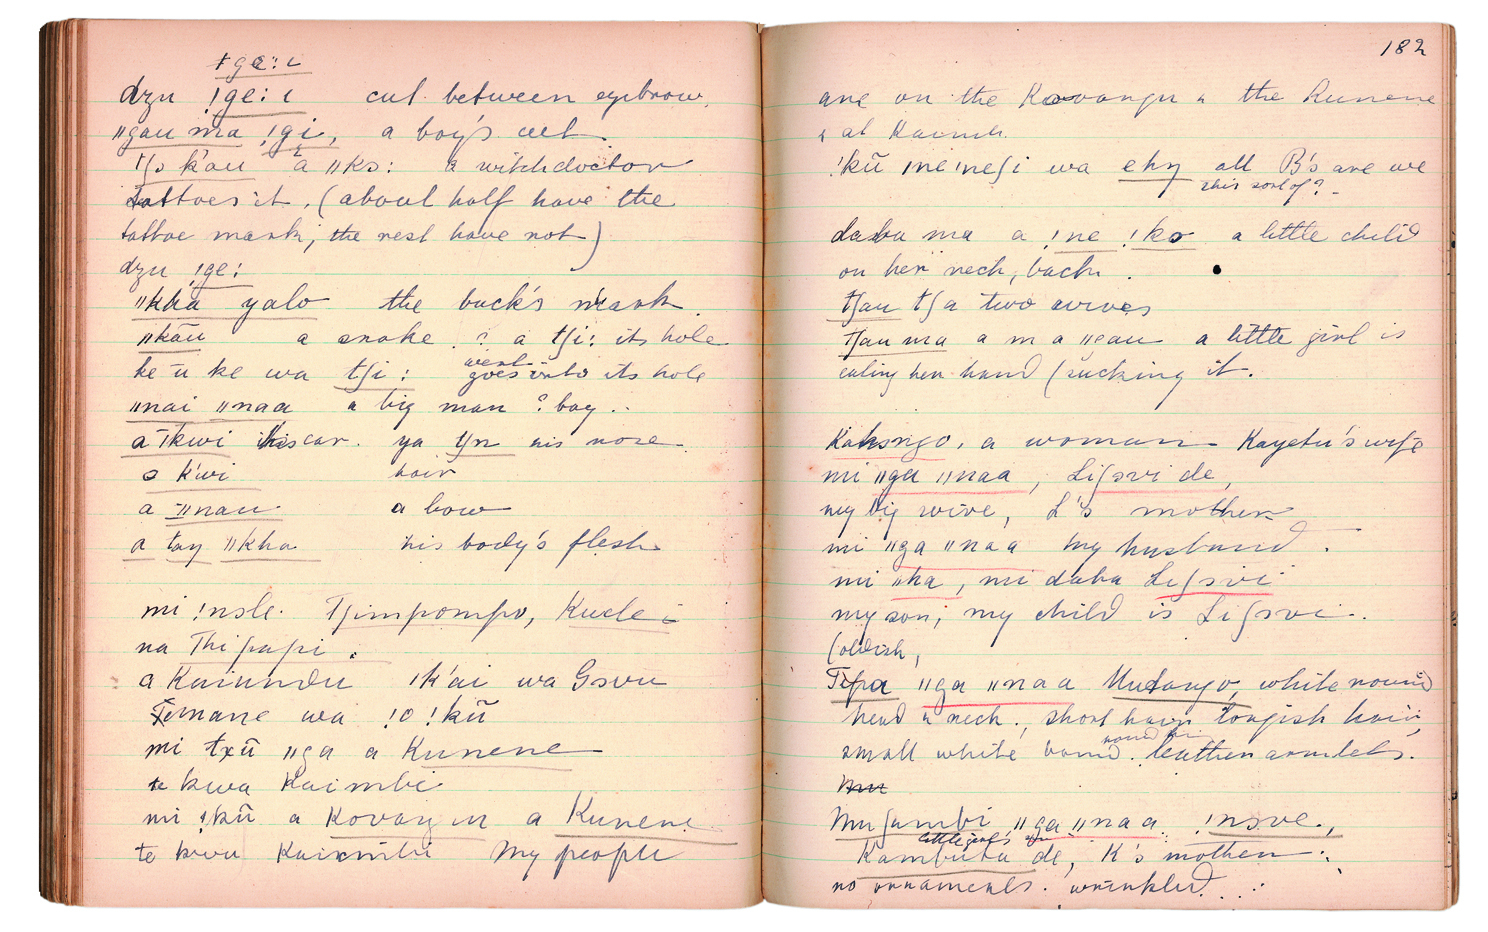 ǂge:ɩ
dzu !ge:ɩ cut between eyebrow.
ǁgau ma !gi, a boy's cut.
tʃɔ k'au a ǁkɔ: a witchdoctor
tattoes it. (about half have the
tattoe mark; the rest have not)
dzu !ge:
ǁkha yalo the buck's mark.
ǁkāu a snake. ? a tʃi: its hole
ke ū ke wa tʃi: went goes into its hole
ǁnai ǁnaa a big man ? boy..
a ǀkwi his ear. ya tʃŋ his nose.
ɔ k'wi hair
a ǁnau a bow
a tay ǁkha his body's flesh
mi !nɔle. Tʃimpompo, Kuelei
na Thipapi.
a Kaiundu ǀk'ai wa Gɔvu
Temane wa !o !kū
mi txū ǁga a Kunene
te kwa Kaimbi
mi !kū a Kovaŋu a Kunene
te kwa Kaimbi My people
182
are on the Kovangu & the Kunene
& at Kaimbi.
!kū ǀne ǀneʃi wa eŋ all B's are we
this sort of? -
daba ma a !ne !ko a little child
on her neck, back.
tʃau tʃa two wives
Tʃau ma a m a ǁgau a little girl is
eating her hand (sucking it.
Kakɔngo, a woman Kayetu's wife
mi ǁga ǁnaa, Liʃɔvi de,
my big wive, L's mother
mi ǁga ǁnaa my husband.
mi ǁha, mi daba Liʃɔvi
my son, my child is Liʃɔvi.
(oldish,
Tipa ǁga ǁnaa Mutango, white round
head & neck., short hair longish hair,
small white band. round leather armlets.
Mu
Muʃambi ǁga ǁnaa !nɔve.,
little girl's
Kambuta de, K's mother.
no ornaments. wrinkled...